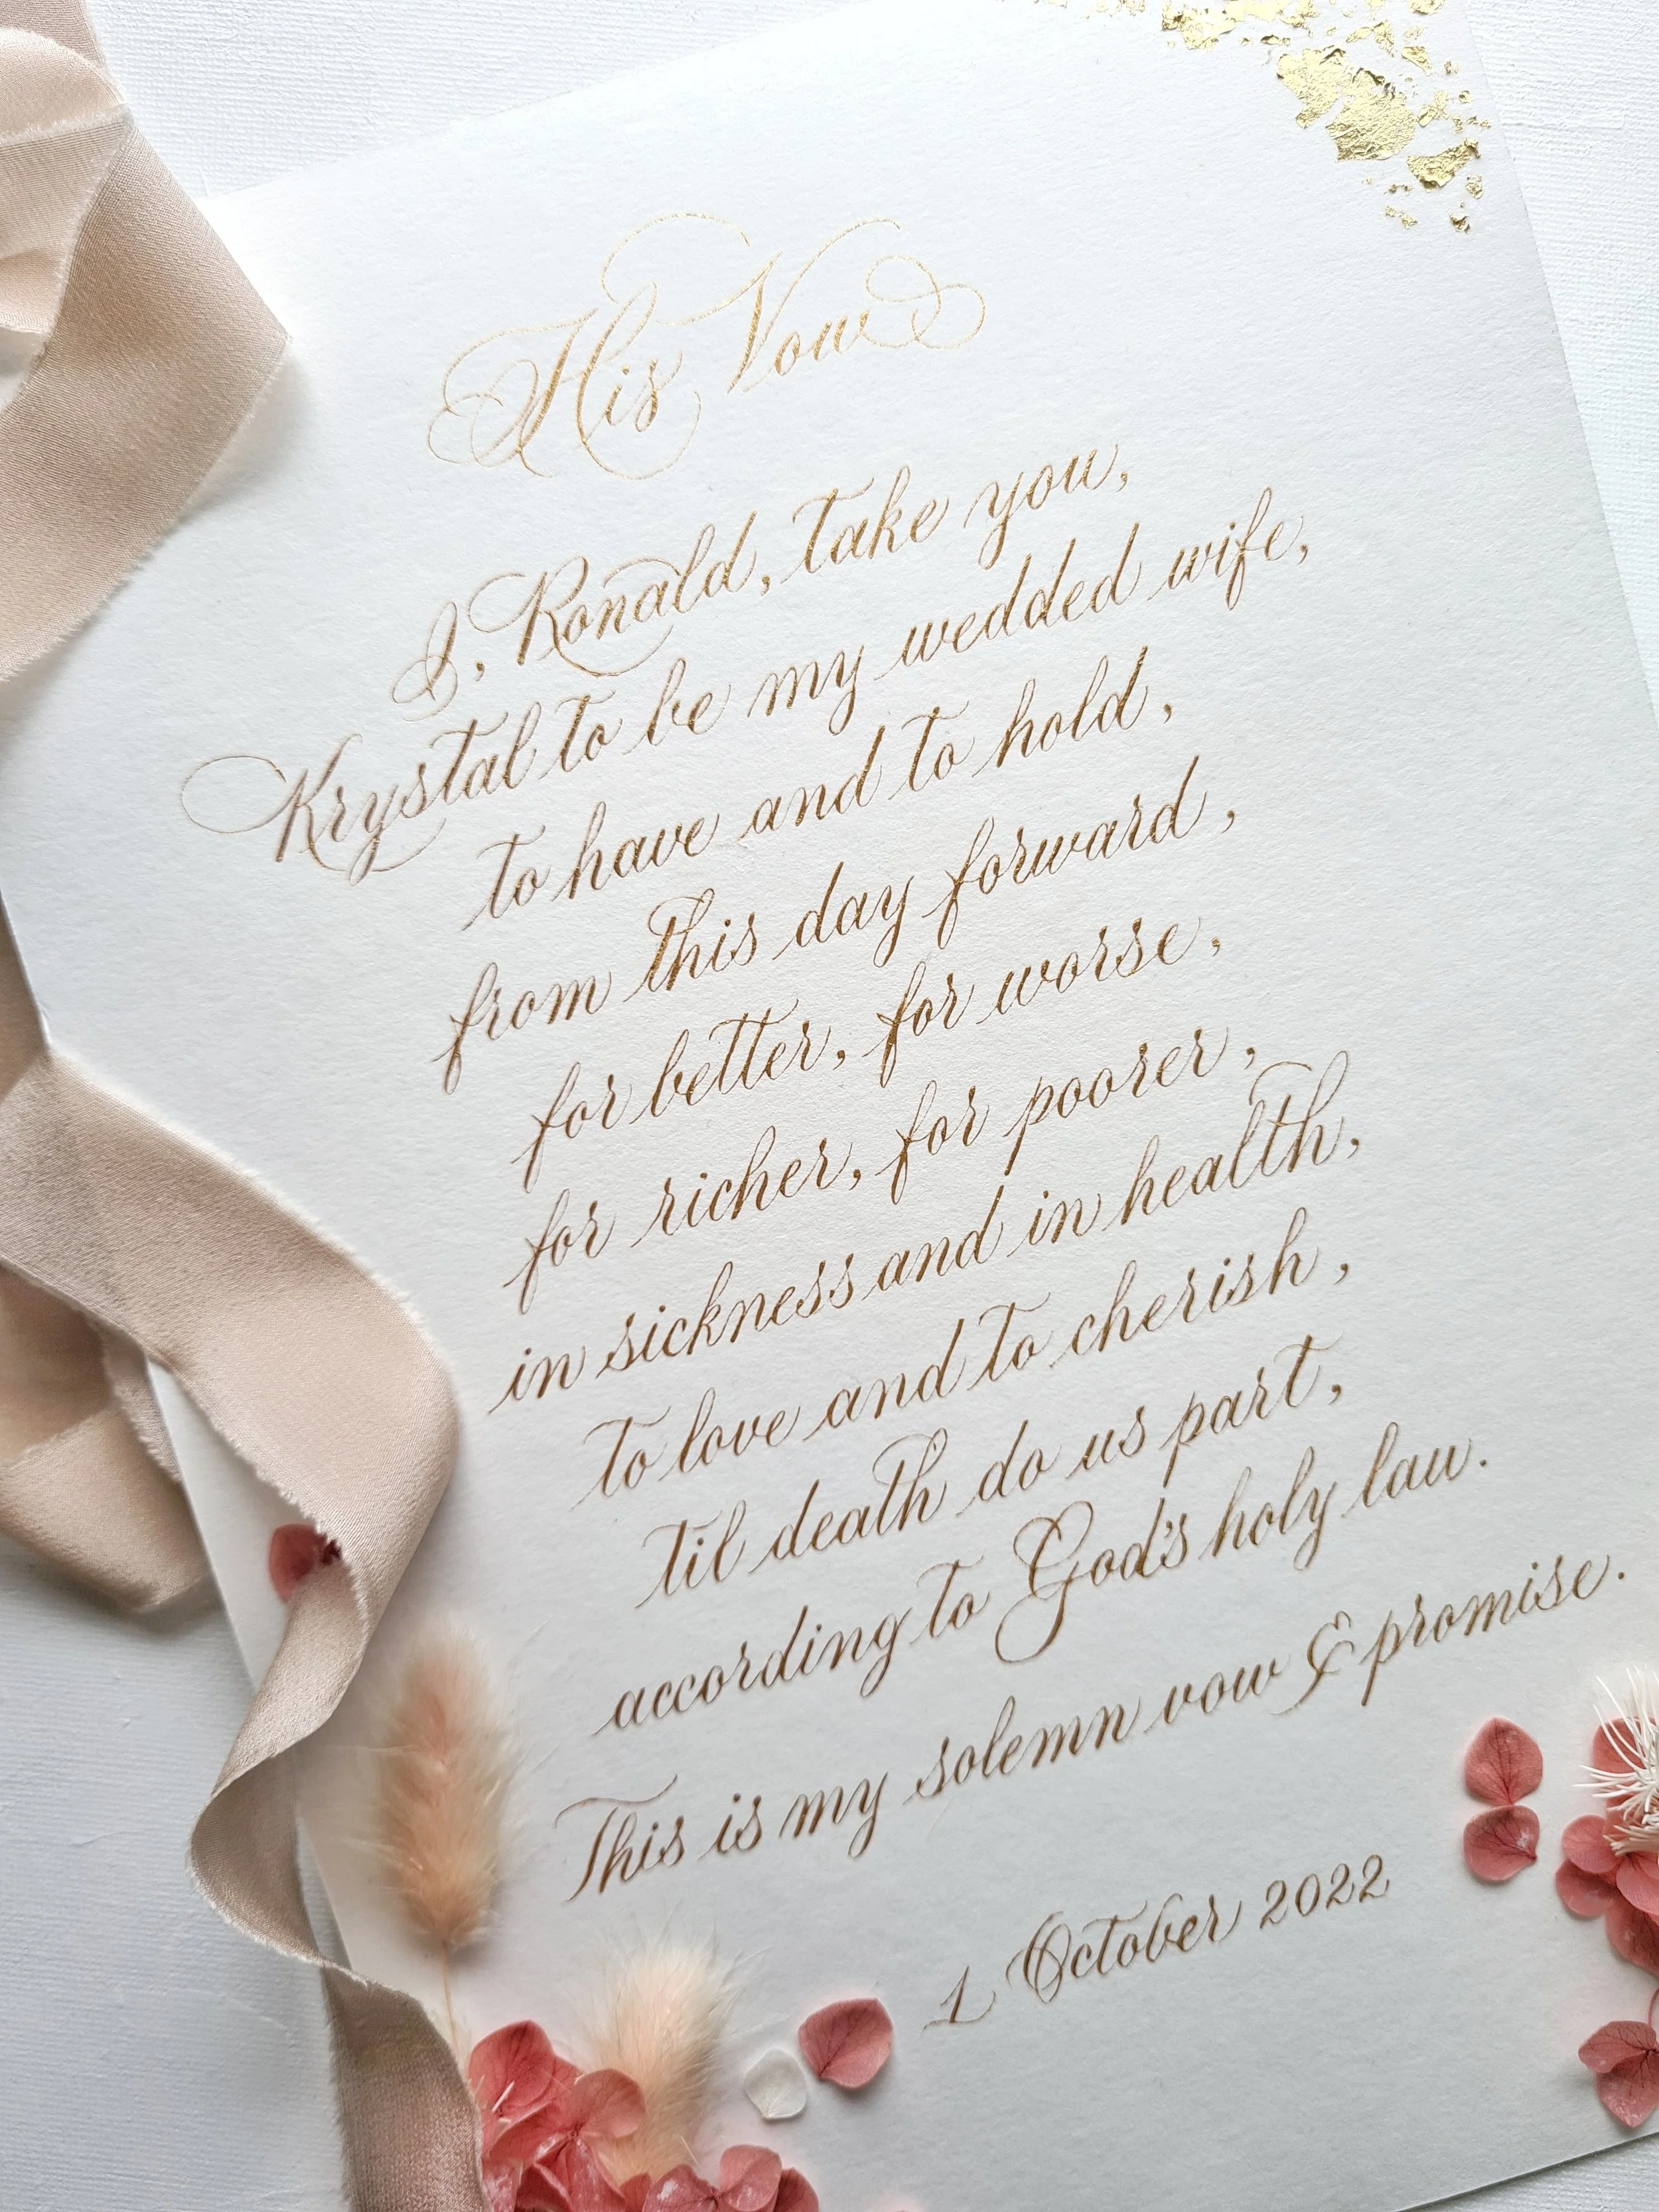 His Vow
I, Ronald, take you,
Krystal to be my wedded wife,
to have and to hold,
from this day forward,
for better, for worse,
for richer, for poorer,
in sickness and in health,
To love and to cherish,
til death do us part,
according to God's holy law.
This is my solemn vow & promise.
1 October 2022